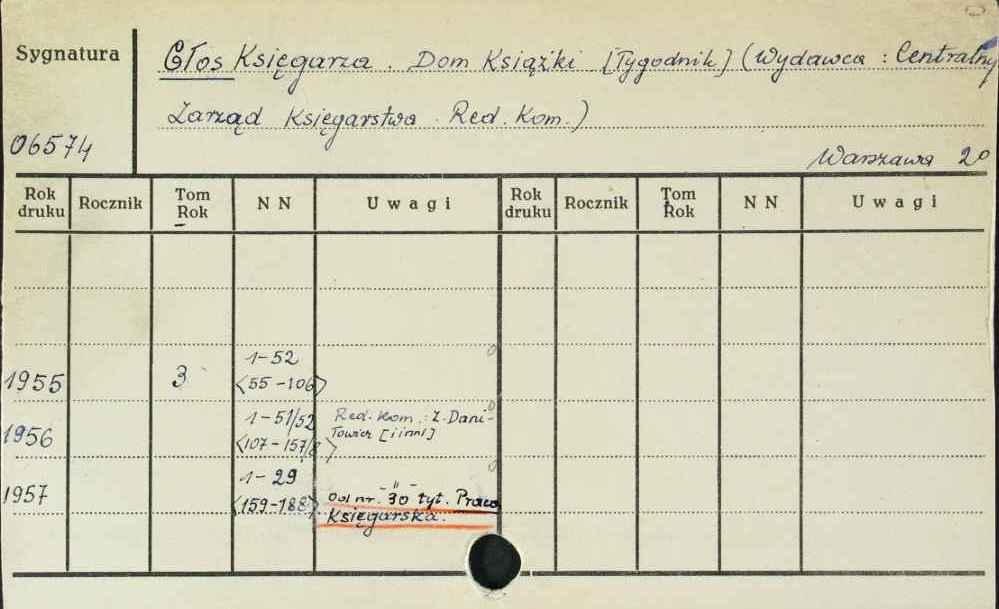 Sygnatura
Głos Księgarza. Dom Książki [Tygodnik] (Wydawca: Centralny
Zarząd Księgarstwa. Red. Kom.)
06574
Warszawa 20
Rok druku Rocznik Tom Rok NN Uwagi Rok druku Rocznik Tom Rok NN Uwagi
1955 3 1-52
<55-106>
1956 1-51/52 Red. Kom.: Z. Dani-
<107-157/8> łowicz [i inni]
1957 1-29 -"-
<159-188> Od nr. 30 tyt. Praca
Księgarska.